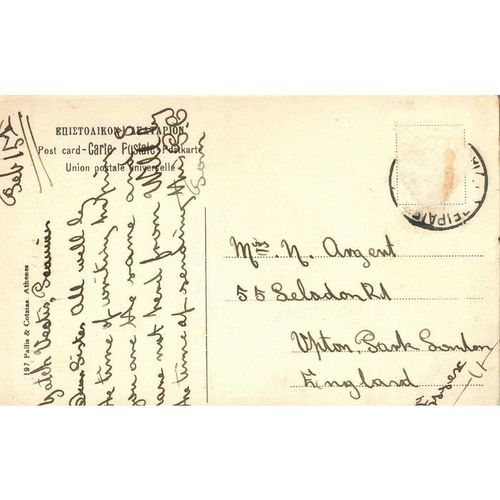 ΕΠΙΣΤΟΛΙΚΟΝ ΔΕΛΤΑΡΙΟΝ
Post card - Carte Postale - Postkarte
Union postale universelle
197 Pallis & Cotzias Athenes
Feb 15th
Yatch Vectis,
Dear Sister All well
the time of writing
you are the same and
have not herd from
the time of sending
ΠΕΙΡΑΙΕ
Miss N. Argent
55 Seladon Rd
Upton, Park London
England
Essex